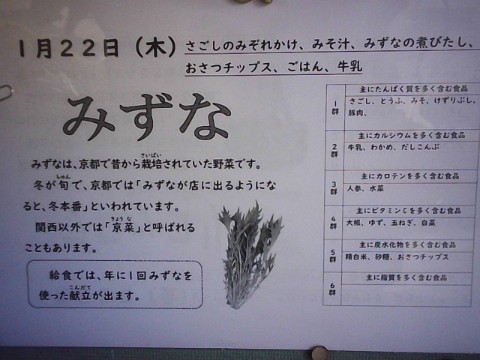 1月22日(木) さごしのみぞれかけ、みそ汁、みずなの煮びたし、
おさつチップス、ごはん、牛乳
みずな
みずなは、京都で昔から栽培されていた野菜です。
さいばい
冬が旬で、京都では「みずなが店に出るようになると、冬本番」といわれています。
しゅん
関西以外では「京菜」と呼ばれることもあります。
きょうな
給食では、年に1回みずなを
使った献立が出ます。
こんだて
主にたんぱく質を多く含む食品
1群
さごし、とうふ、みそ、けずりぶし、
豚肉、
主にカルシウムを多く含む食品
2群
牛乳、わかめ、だしこんぶ
主にカロテンを多く含む食品
3群
人参、水菜
主にビタミンCを多く含む食品
大根、ゆず、玉ねぎ、白菜
主に炭水化物を多く含む食品
5群
精白米、砂糖、おさつチップス
主に脂質を多く含む食品
6群